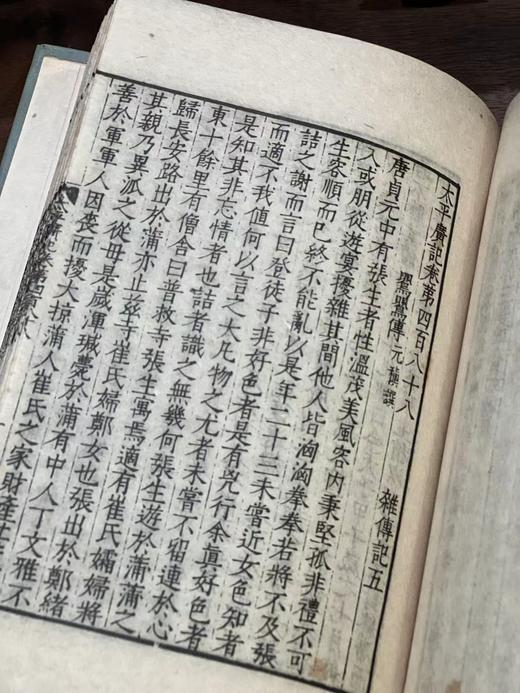 太平廣記卷第四百八十八　雜傳記五
鶯鶯傳元稹撰
唐貞元中有張生者性溫茂美風容內秉堅孤非禮不可
入或朋從遊宴擾雜其間他人皆洶洶拳拳若將不及張
生容順而已終不能亂以是年二十三未嘗近女色知者
詰之謝而言曰登徒子非好色者是有兇行余眞好色者
而適不我值何以言之大凡物之尤者未嘗不留連於心
是知其非忘情者也詰者識之無幾何張生遊於蒲蒲之
東十餘里有僧舍曰普救寺張生寓焉適有崔氏孀婦將
歸長安路出於蒲亦止茲寺崔氏婦鄭女也張出於鄭緒
其親乃異派之從母是歲渾瑊薨於蒲有中人丁文雅不
善於軍軍人因喪而擾大掠蒲人崔氏之家財產甚